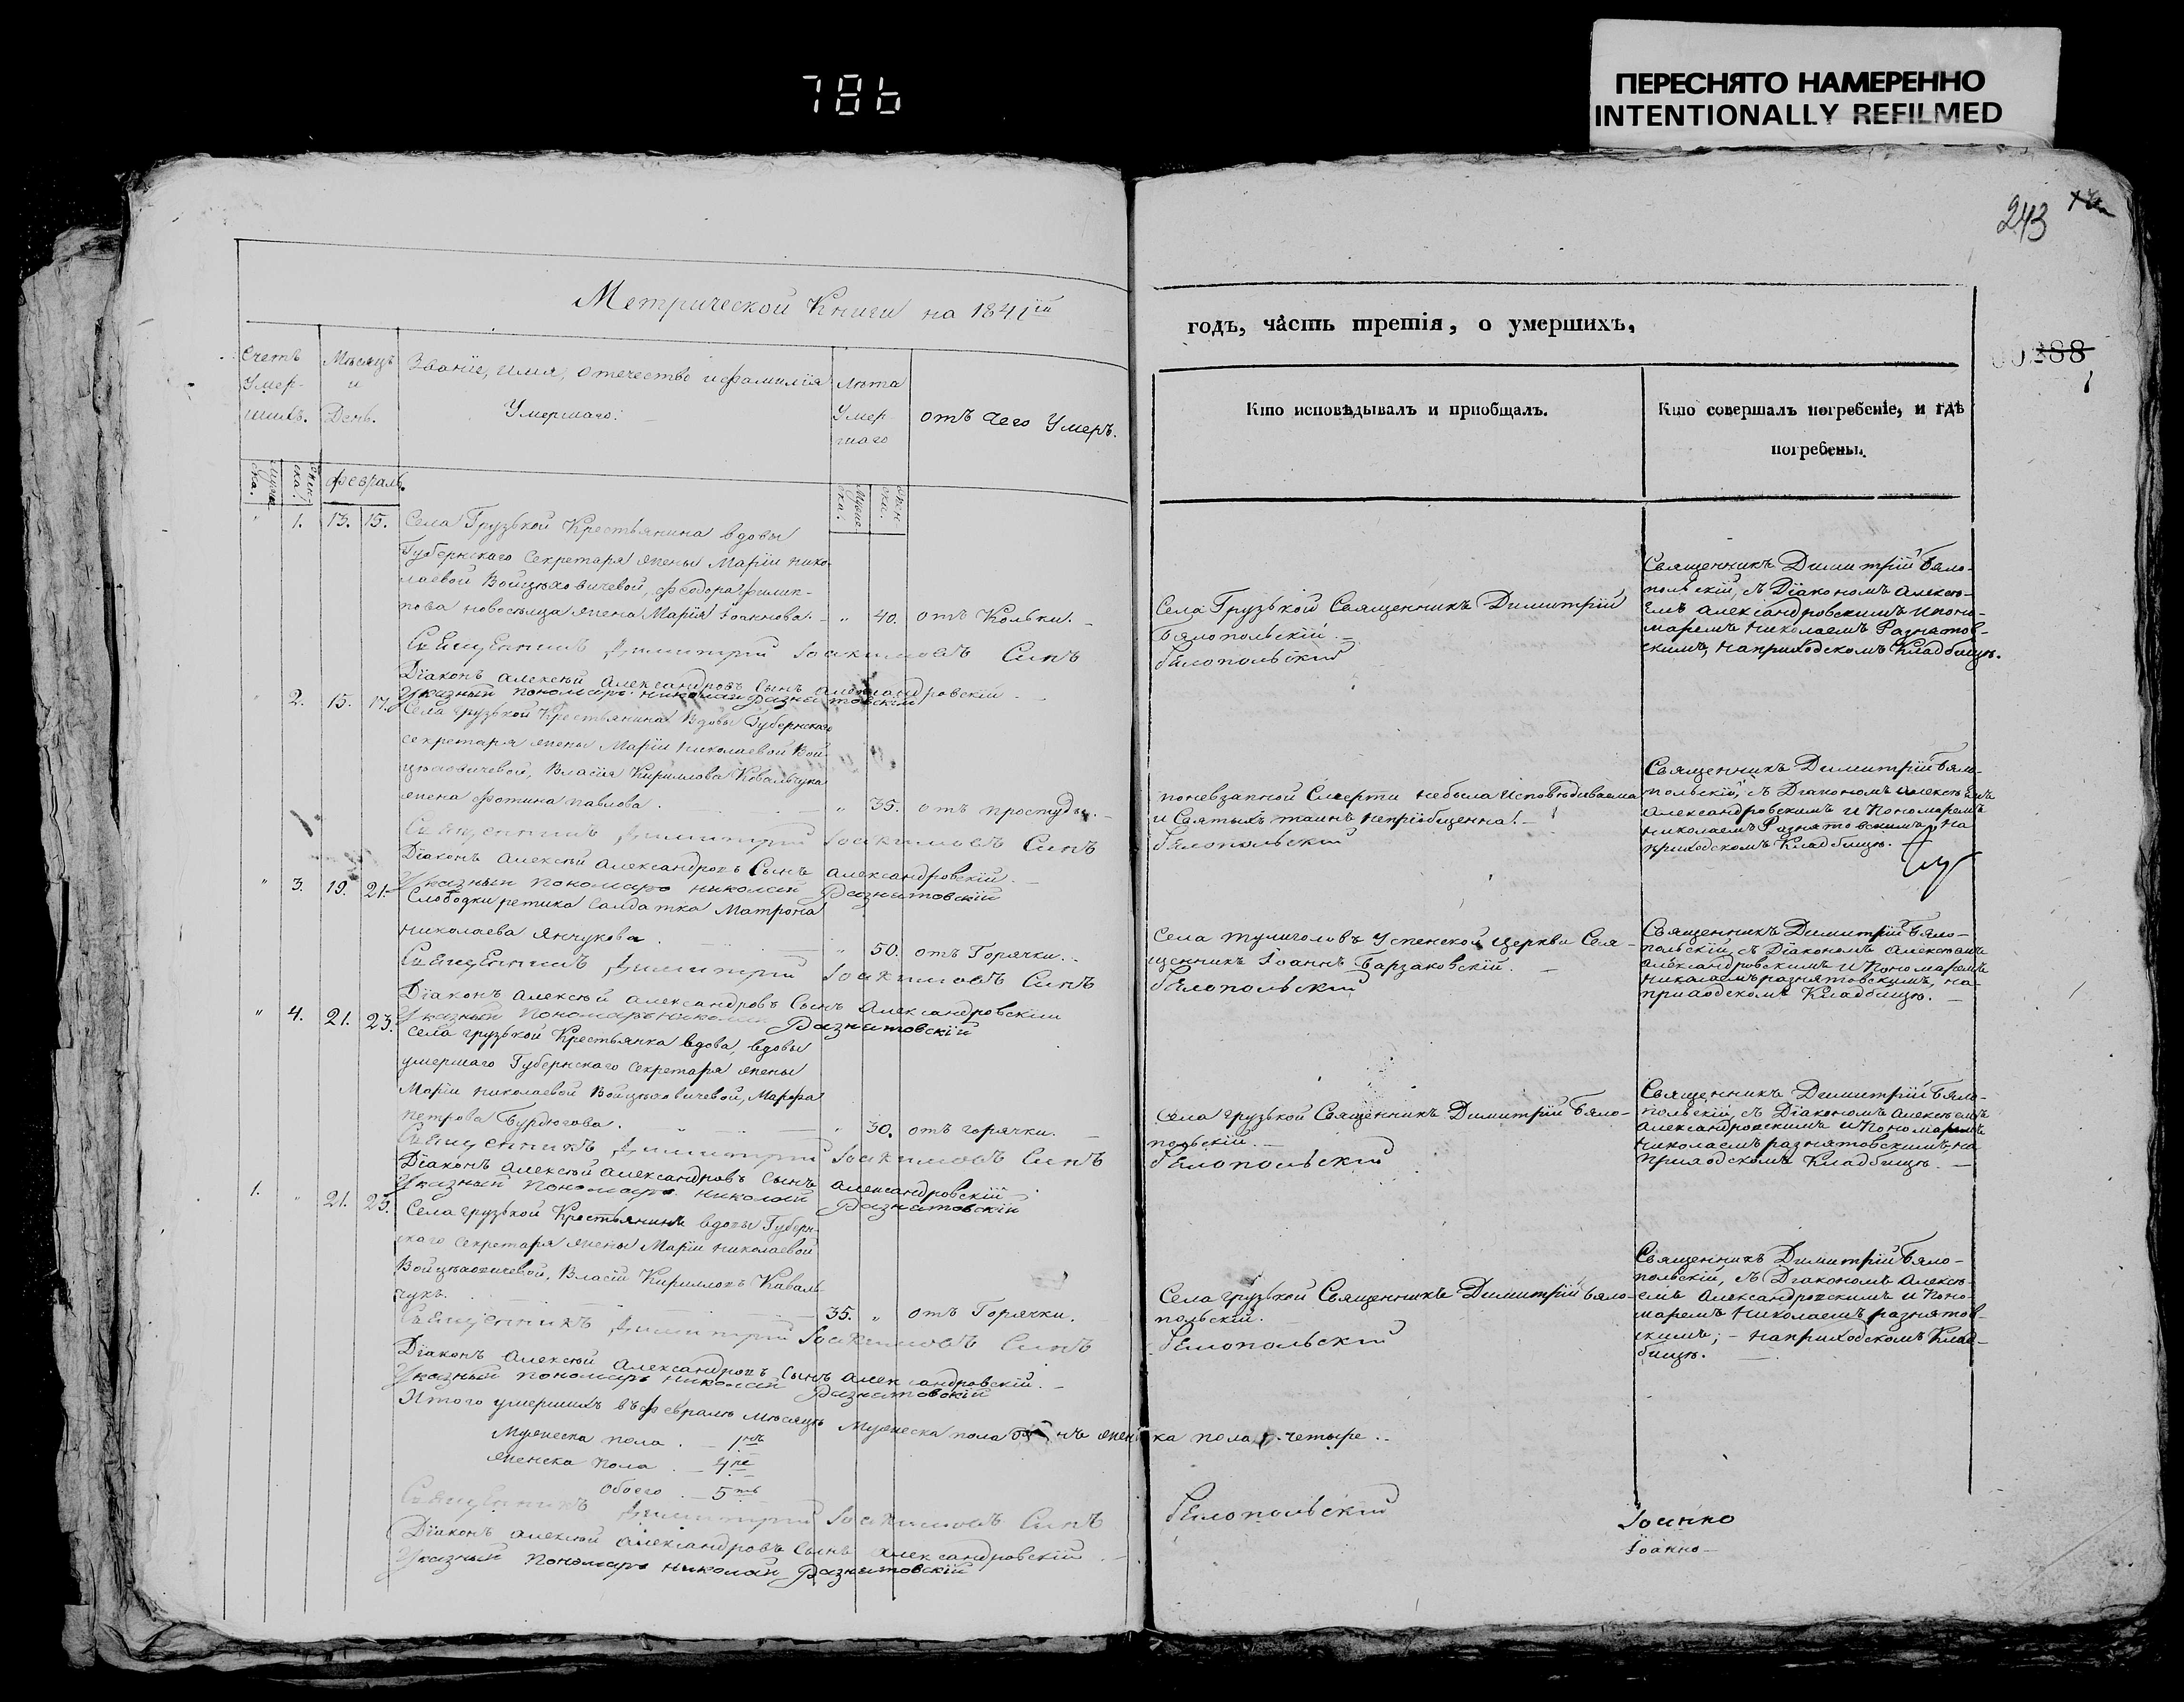 786
ПЕРЕСНЯТО НАМЕРЕННО
INTENTIONALLY REFILMED
243
Метрической Книги на 1841й
годъ, часть третія, о умершихъ.
288
1
Счетъ Умер-шихъ.
Мѣсяцъ и День.
Званіе, имя, отечество и фамилія Умершаго.
Лѣта Умер шаго
отъ чего Умеръ.
Кто исповѣдывалъ и пріобщалъ.
Кто совершалъ погребеніе, и гдѣ погребены.
Муже-ска.
Жен-ска.
февраль.
Муже-ска.
Жен-ска.
" 1. 13. 15. Села Грузькой Крестьянина вдовы
Губернскаго Секретаря жены Маріи нико-
лаевой Войцѣховичевой, Феодора филип-
пова новосельца жена Марія Іоаннова. " 40. отъ Кольки.
Села Грузькой Священникъ Димитрій
Бялопольскій.
Священникъ Димитрій Бяло-
польскій, съ Діакономъ Алексѣ-
емъ Александровскимъ и поно-
маремъ Николаемъ Разнатов-
скимъ, на приходскомъ Кладбищѣ.
Священникъ Димитрій Іоакимовъ Синъ Бѣлопольскій
Діаконъ Алексѣй Александровъ Сынъ Александровскій
Указный пономарь Николай Разнатовскій
" 2. 15. 17. Села Грузькой Крестьянина Вдовы Губернскаго
секретаря жены Маріи николаевой Вой-
цѣховичевой, Власія Кирилова Ковальчука
жена фотина павлова. " 35. отъ простуды.
поневзапной Смерти небыла Исповѣдиваема
и Святыхъ таинъ непріобщенна.
Священникъ Димитрій Бяло-
польскій, съ Діакономъ Алексѣемъ
Александровскимъ и Пономаремъ
Николаемъ Разнятовскимъ, на
приходскомъ Кладбищѣ.
Священникъ Димитрій Іоакимовъ Синъ Бѣлопольскій
Діаконъ Алексѣй Александровъ Сынъ Александровскій.
Указный пономарь николай Разнатовскій
" 3. 19. 21. Слободки ретика Салдатка Матрона
Николаева Янчукова. " 50. отъ Горячки.
Села тулиголовъ Успенской церкви Свя-
щенникъ Іоаннъ Барзаковскій.
Священникъ Димитрій Бяло-
польскій, съ Діакономъ Алексѣемъ
Александровскимъ и Пономаремъ
Николаемъ разнятовскимъ, на
приходскомъ Кладбищѣ.
Священникъ Димитрій Іоакимовъ Синъ Бѣлопольскій
Діаконъ Алексѣй Александровъ Сынъ Александровскій
Указный Пономарь николай Разнатовскій
" 4. 21. 23. Села грузькой Крестьянка вдова, вдовы
умершаго Губернскаго Секретаря жены
Маріи николаевой Войцѣховичевой, Марфа
петрова Бурдюгова. " 30. отъ горячки.
Села грузькой Священникъ Димитрій Бяло-
польскій.
Священникъ Димитрій Бяло-
польскій, съ Діакономъ Алексѣемъ
Александровскимъ и Пономаремъ
Николаемъ разнятовскимъ, на
приходскомъ Кладбищѣ.
Священникъ Димитрій Іоакимовъ Синъ Бѣлопольскій
Діаконъ Алексѣй Александровъ Сынъ Александровскій
Указный Пономарь николай Разнатовскій
1. " 21. 23. Села грузькой Крестьянинъ вдовы Губерн-
скаго секретаря жены Маріи николаевой
Войцѣховичевой, Власій Кириловъ Коваль-
чукъ. 35. " отъ Горячки.
Села грузькой Священникъ Димитрій Бяло-
польскій.
Священникъ Димитрій Бяло-
польскій, съ Діакономъ Алексѣ-
емъ Александровскимъ и Поно-
маремъ Николаемъ разнятов-
скимъ; на приходскомъ Клад-
бищѣ.
Священникъ Димитрій Іоакимовъ Синъ Бѣлопольскій
Діаконъ Алексѣй Александровъ Сынъ Александровскій.
Указный пономарь николай Разнатовскій
Итого умершихъ въ февралѣ мѣсяцѣ Мужеска пола женска пола четыре.
Мужеска пола 1нъ
Женска пола 4ре
Обоего 5ть
Священникъ Димитрій Іоакимовъ Синъ Бѣлопольскій
Діаконъ Алексѣй Александровъ Сынъ Александровскій
Указный Пономарь николай Разнатовскій